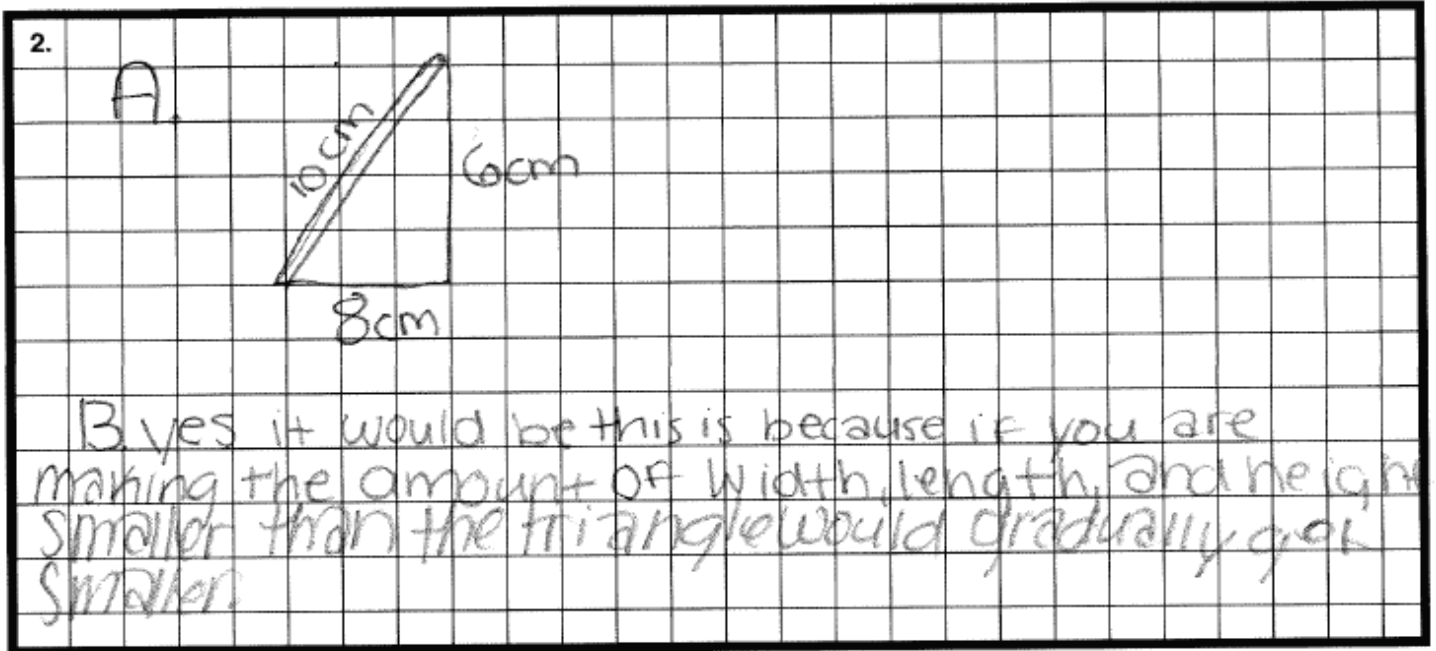 2.
A.
10 cm
6cm
8cm
B. yes it would be this is because if you are
making the amount of width, length, and height
smaller than the triangle would gradually get
smaller.